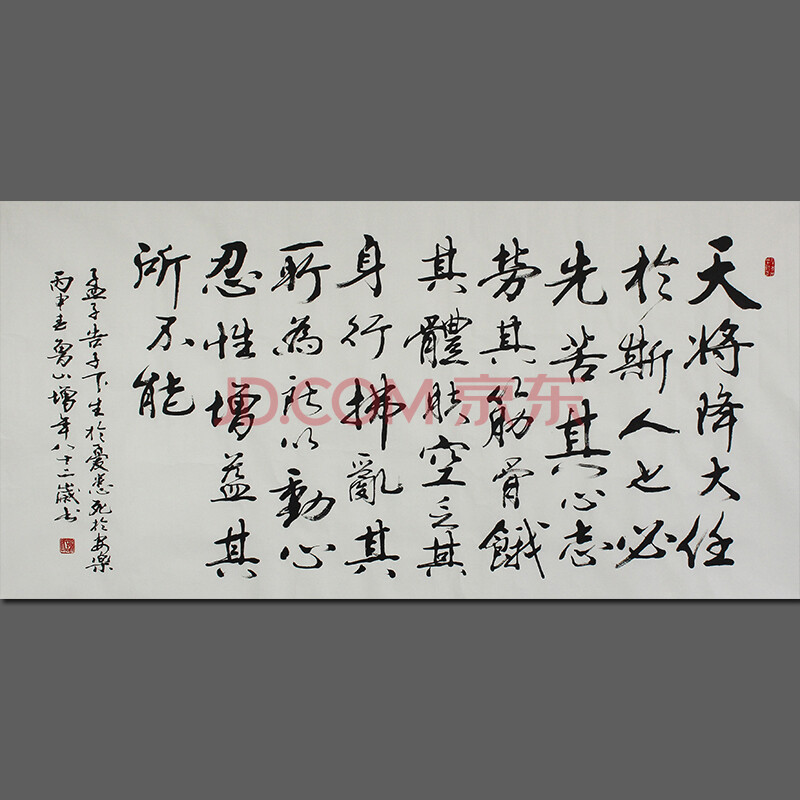 天将降大任
於斯人也必
先苦其心志
劳其筋骨餓
其體膚空乏其
身行拂亂其
所為所以動心
忍性增益其
所不能
孟子告子下生於憂患死於安樂
丙申春魯山增年八十二歲書
JD.COM 京东